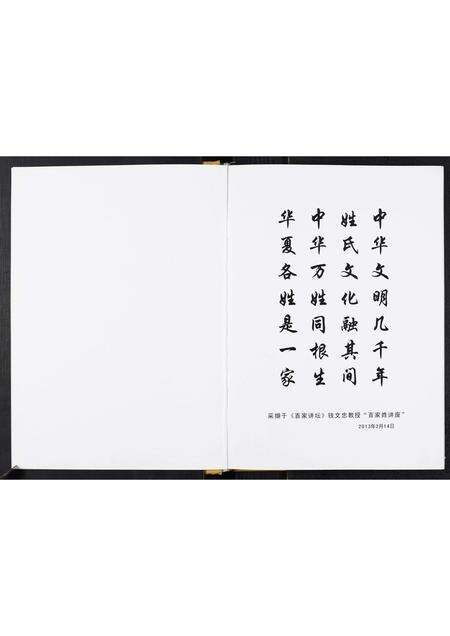 中华文明几千年
姓氏文化融其间
中华万姓同根生
华夏各姓是一家
采撷于《百家讲坛》钱文忠教授“百家姓讲座”
2013年2月14日